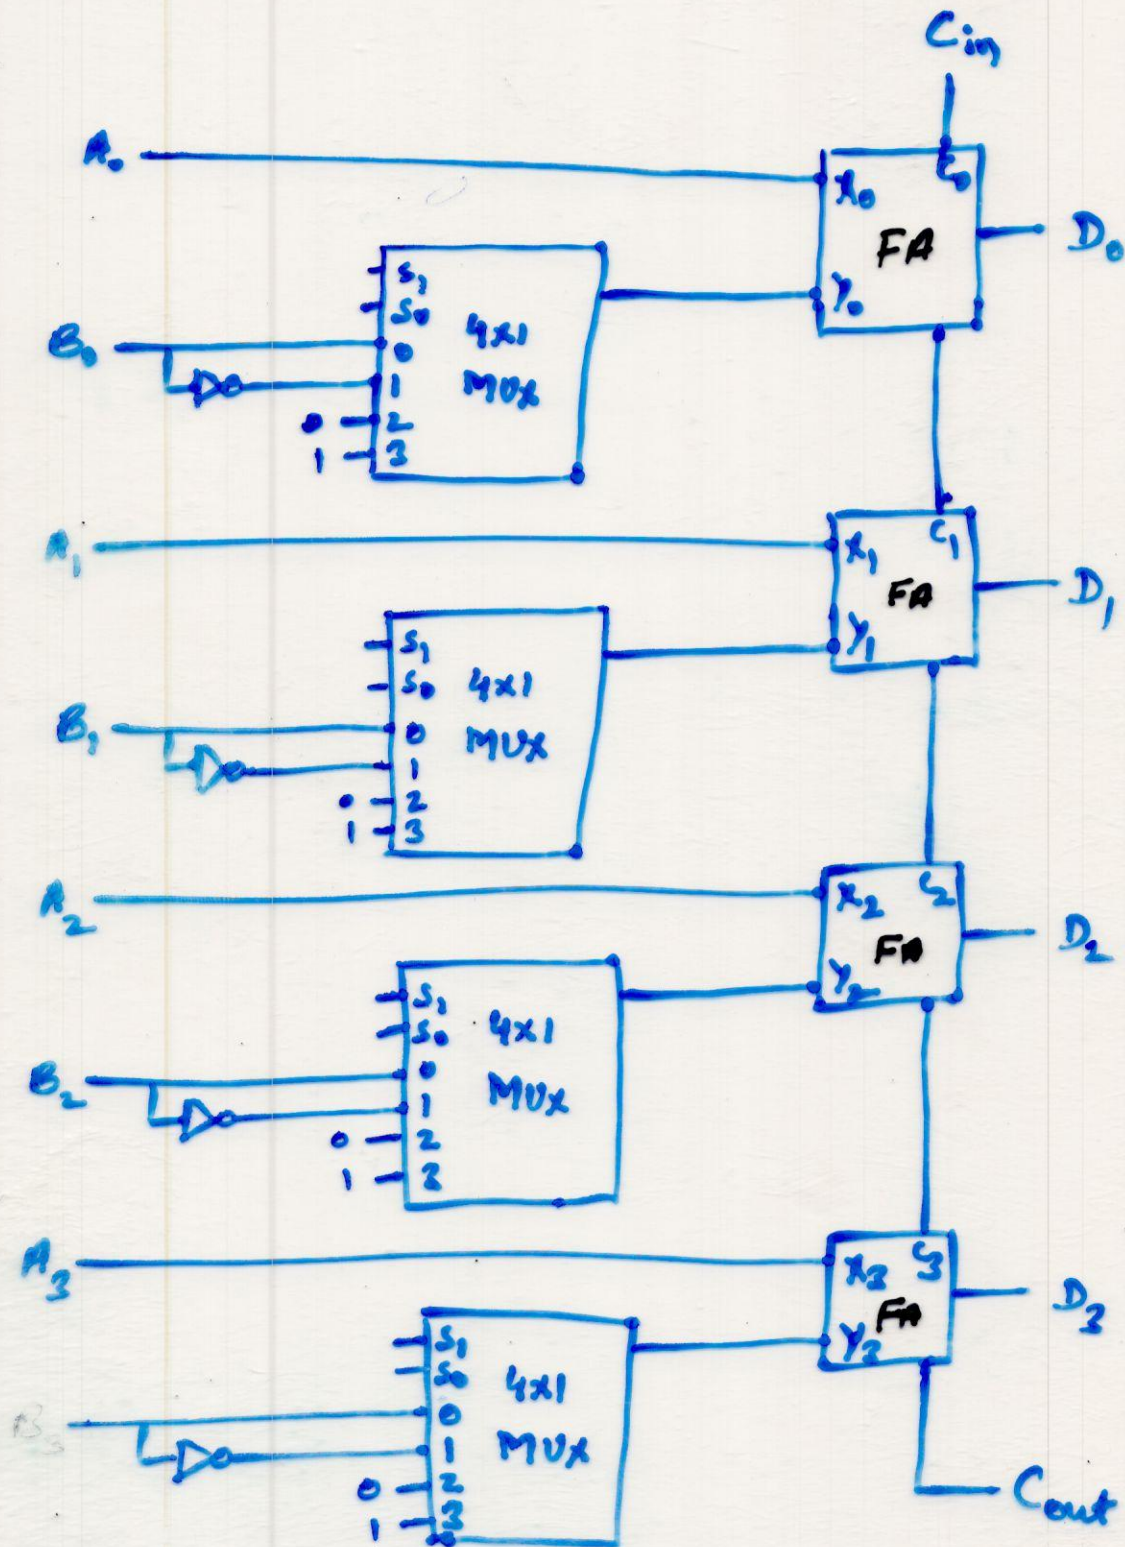 Cin
A₀
X₀ C₀
FA
D₀
Y₀
S₁
S₀
4x1
MUX
B₀
0
1
0 2
1 3
A₁
X₁ C₁
FA
D₁
Y₁
S₁
S₀
4x1
MUX
B₁
0
1
0 2
1 3
A₂
X₂ C₂
FA
D₂
Y₂
S₁
S₀
4x1
MUX
B₂
0
1
0 2
1 3
A₃
X₃ C₃
FA
D₃
Y₃
S₁
S₀
4x1
MUX
B₃
0
1
0 2
1 3
Cout